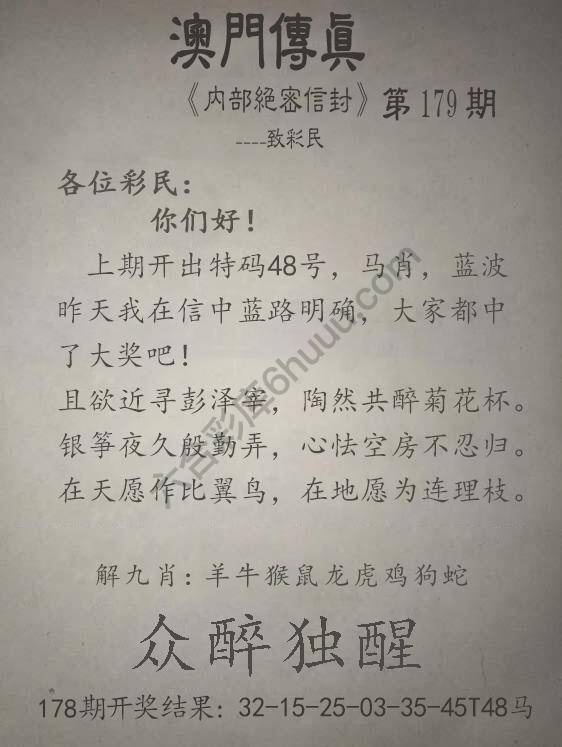 澳門傳眞
《内部絕密信封》第179期
----致彩民
各位彩民：
你们好！
上期开出特码48号，马肖，蓝波
昨天我在信中蓝路明确，大家都中
了大奖吧！
且欲近寻彭泽宰，陶然共醉菊花杯。
银筝夜久殷勤弄，心怯空房不忍归。
在天愿作比翼鸟，在地愿为连理枝。
六合彩库6huuu.com
解九肖：羊牛猴鼠龙虎鸡狗蛇
众醉独醒
178期开奖结果：32-15-25-03-35-45T48马